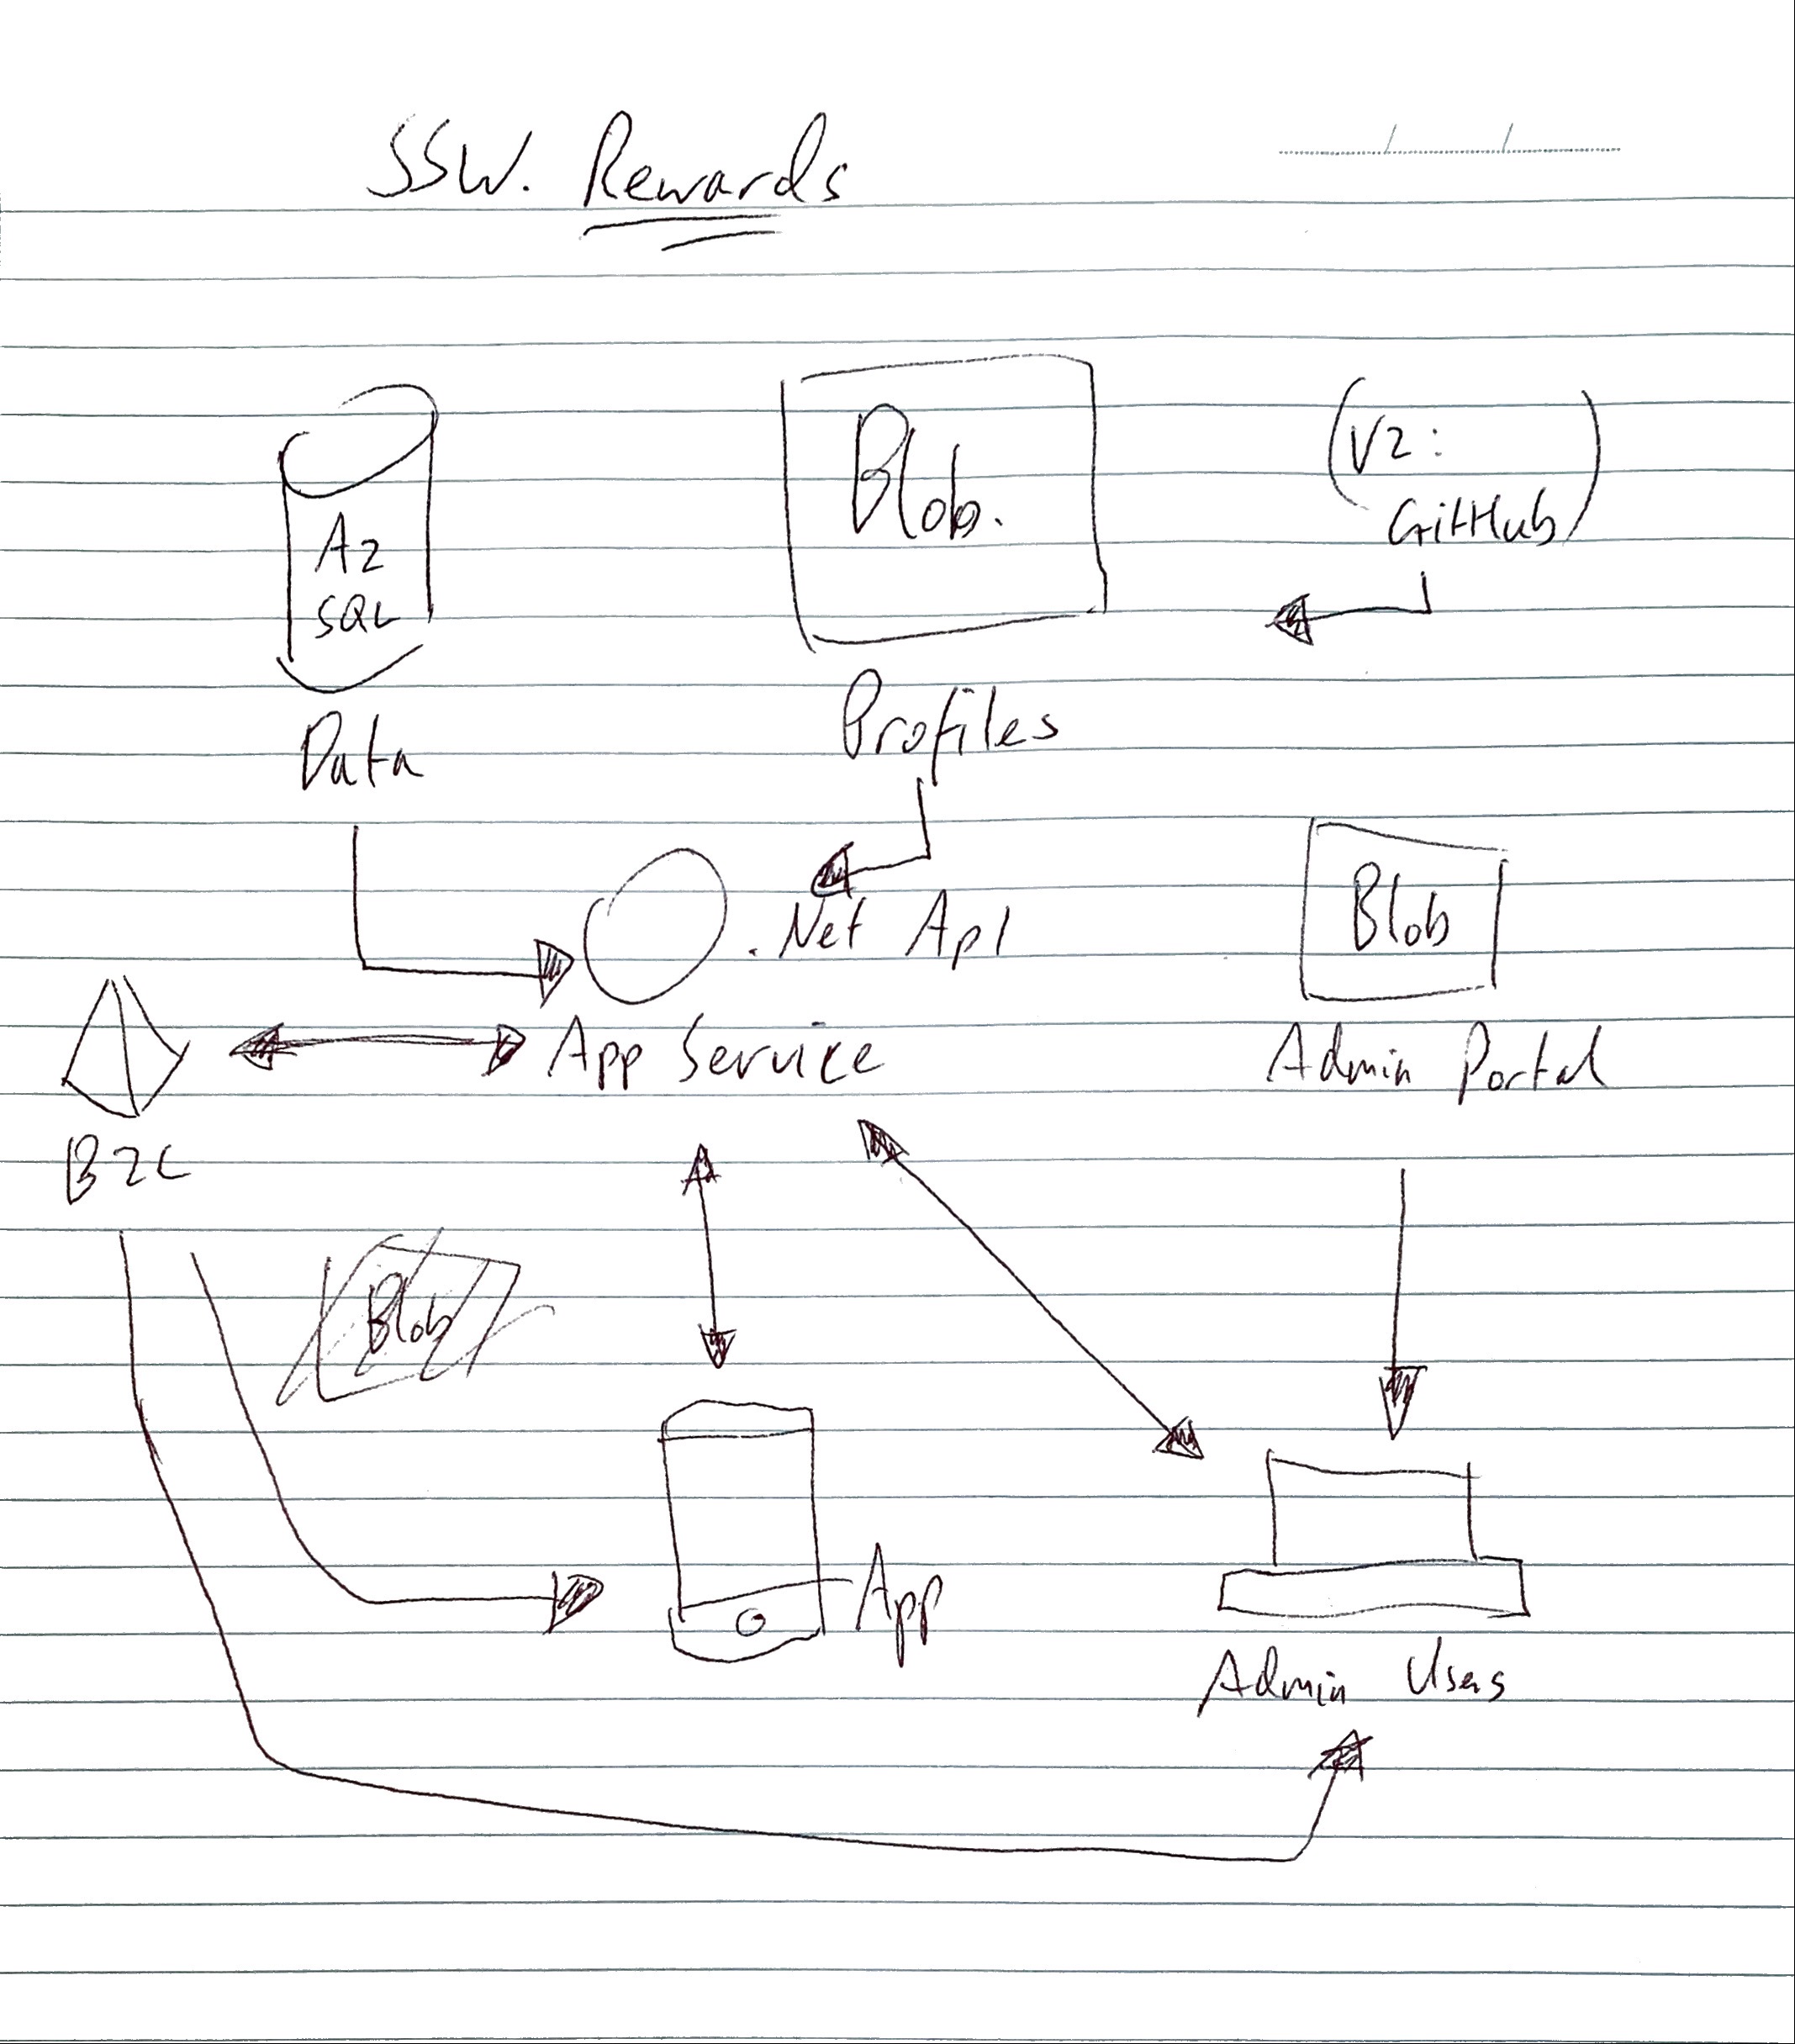 SSW. Rewards
Az
SQL
Data
Blob.
Profiles
(V2:
GitHub)
.Net API
App Service
B2C
Blob
Admin Portal
Blob
App
Admin Users